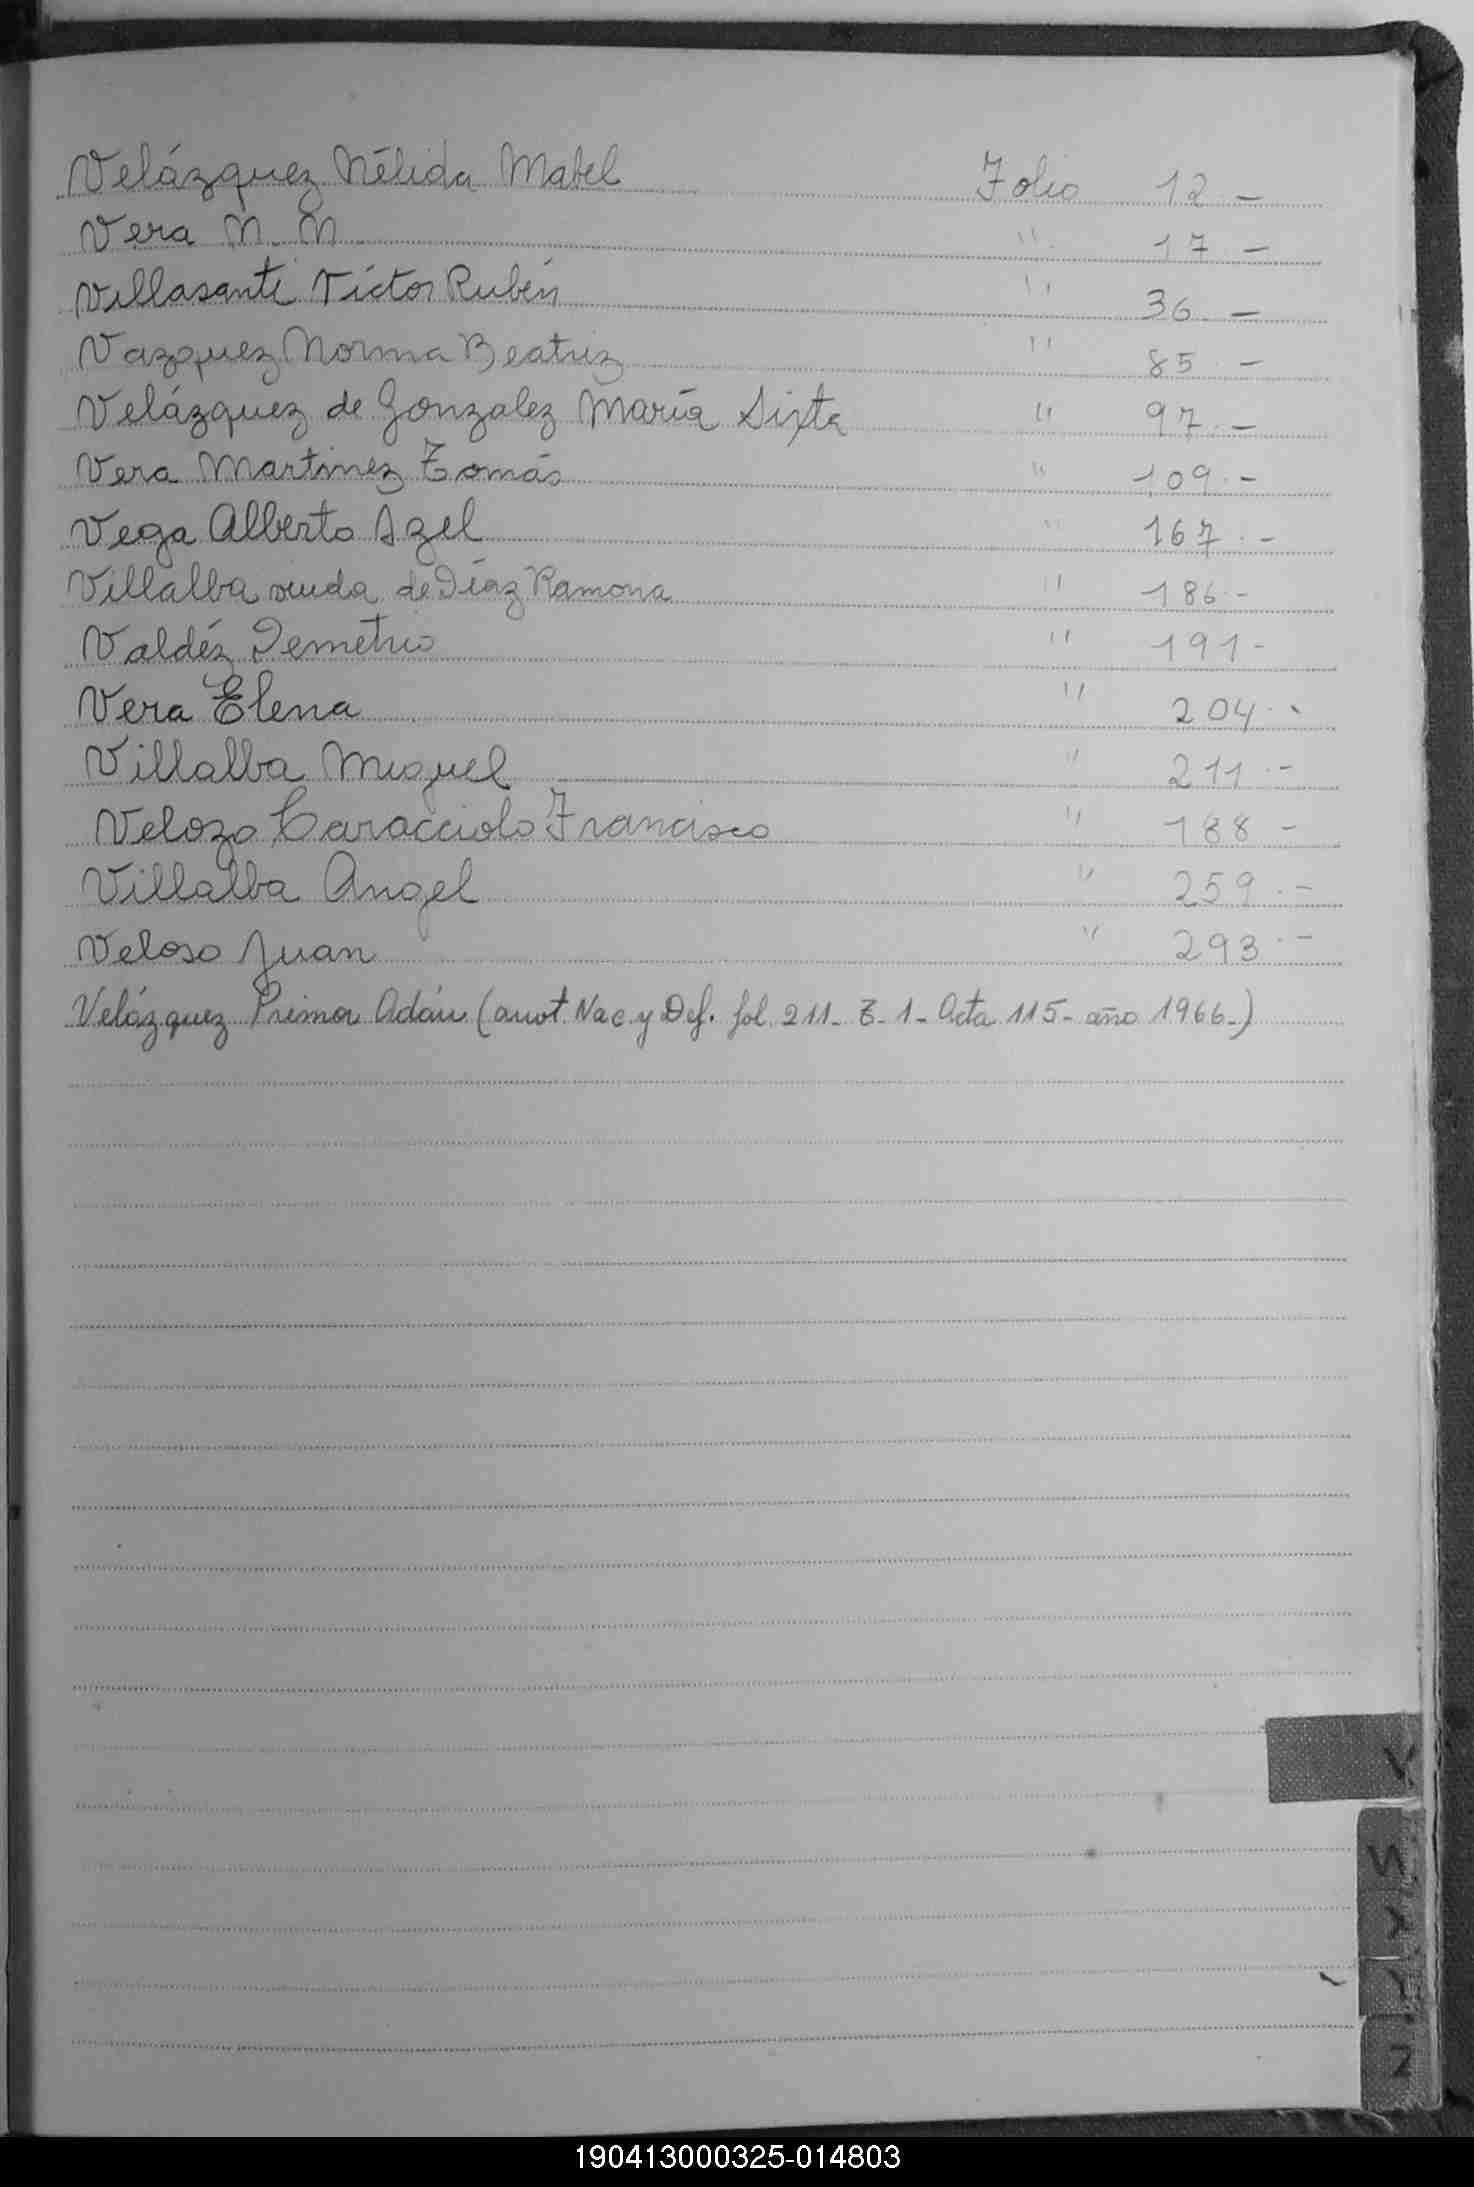 Velázquez Nélida Mabel Folio 12.-
Vera N. N " 17.-
Villasanti Víctor Rubén " 36.-
Vazquez Norma Beatriz " 85.-
Velázquez de Gonzalez María Sixta " 97.-
Vera Martinez Tomás " 109.-
Vega Alberto Azel " 167.-
Villalba viuda de Díaz Ramona " 186.-
Valdéz Demetrio " 191-
Vera Elena " 204.-
Villalba Miguel " 211.-
Velozo Caracciolo Francisco " 188-
Villalba Angel " 259.-
Veloso Juan " 293.-
Velázquez Primor Adán (anot. Nac. y Def. fol. 211- T- 1- Acta 115- año 1966-)
V
W
X
Y
Z
190413000325-014803